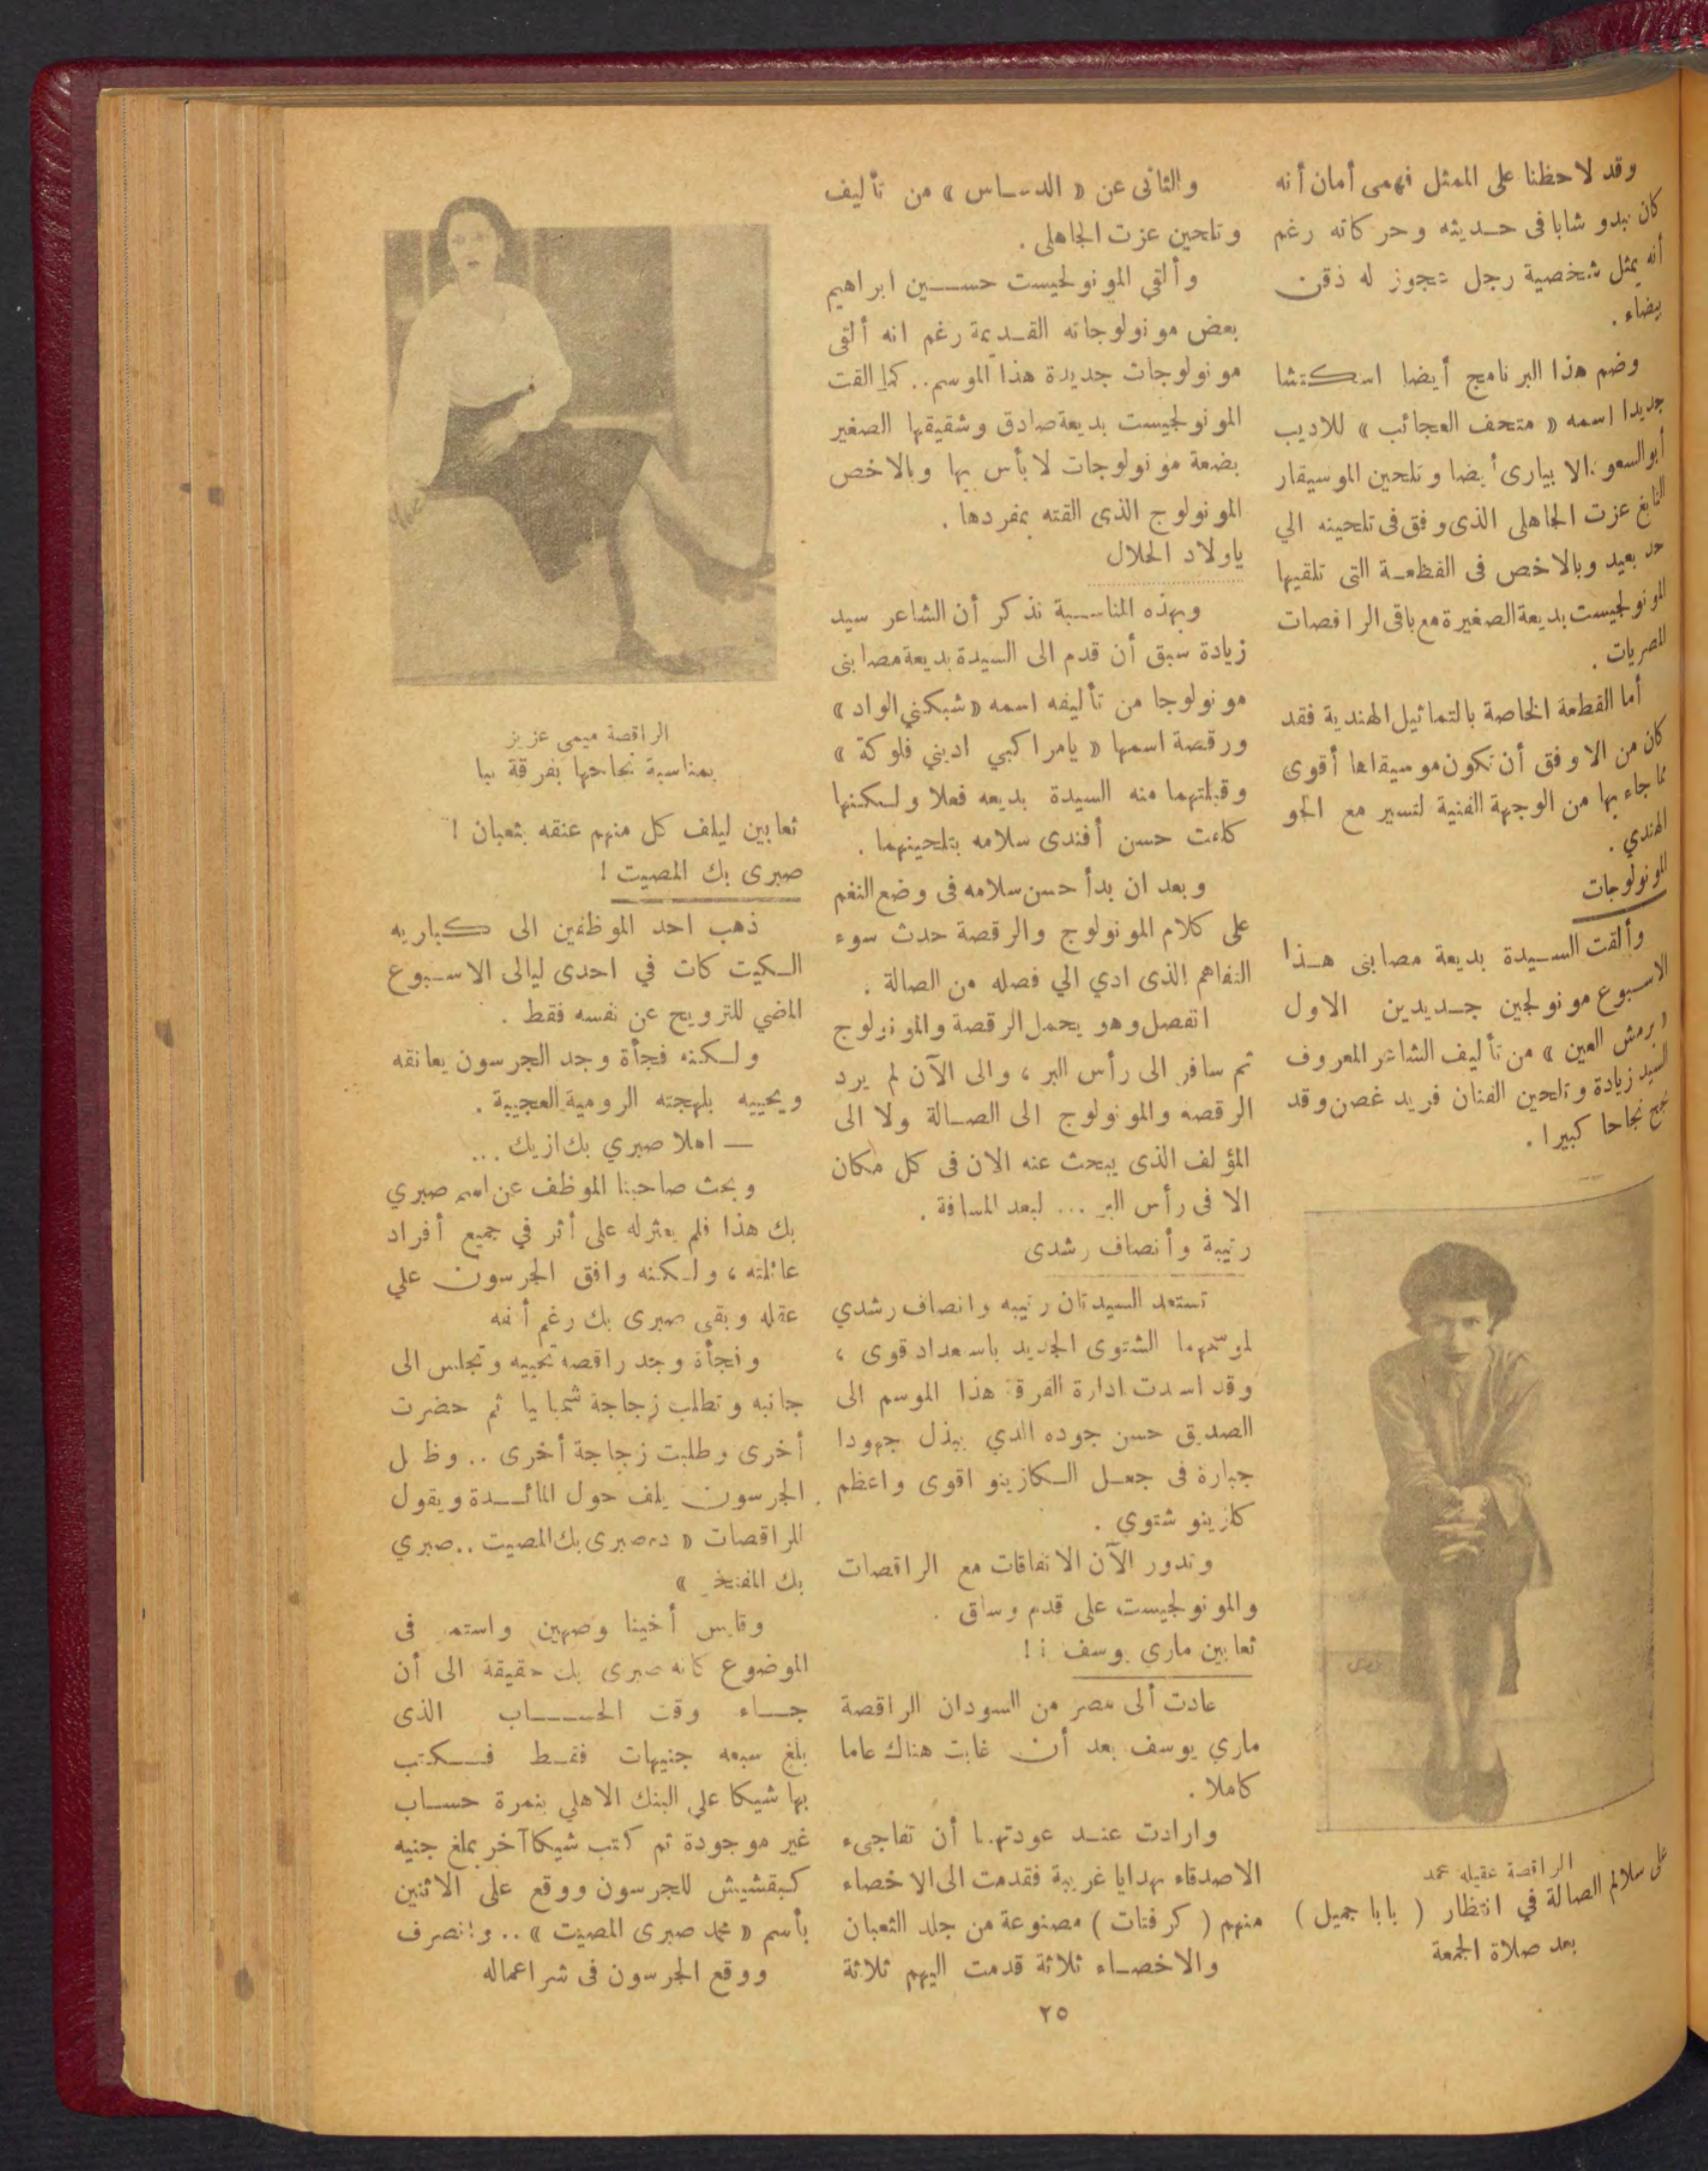 وقد لاحظنا على الممثل فهمى أمان أنه
كان يبدو شابا فى حديثه وحركاته رغم
أنه يمثل شخصية رجل عجوز له ذقن
بيضاء .
وضم هذا البرنامج أيضا اسكتشا
جديدا اسمه « متحف العجائب » للاديب
أبو السعود الابيارى أيضا وتلحين الموسيقار
النابغ عزت الجاهلى الذى وفق فى تلحينه الي
حد بعيد وبالاخص فى القطعة التى تلقيها
المونولجيست بديعة الصغيرة مع باقى الراقصات
المصريات .
أما القطعة الخاصة بالتماثيل الهندية فقد
كان من الاوفق أن تكون موسيقاها أقوى
مما جاء بها من الوجهة الفنية لتسير مع الجو
الهندي .
المونولوجات
وألقت السيدة بديعة مصابنى هذا
الاسبوع مونولجين جديدين الاول
« برمش العين » من تأليف الشاعر المعروف
السيد زيادة وتلحين الفنان فريد غصن وقد
نجح نجاحا كبيرا .
الراقصة عقيله محمد
على سلالم الصالة في انتظار ( بابا جميل )
بعد صلاة الجمعة
والثانى عن « الدساس » من تأليف
وتلحين عزت الجاهلى .
وألقي المونولجيست حسين ابراهيم
بعض مونولوجاته القديمة رغم انه ألقى
مونولوجات جديدة هذا الموسم .. كما القت
المونولجيست بديعة صادق وشقيقها الصغير
بضعة مونولوجات لا بأس بها وبالاخص
المونولوج الذى القته بمفردها .
ياولاد الحلال
وبهذه المناسبة نذكر أن الشاعر سيد
زيادة سبق أن قدم الى السيدة بديعة مصابنى
مونولوجا من تأليفه اسمه « شبكني الواد »
ورقصة اسمها « يامراكبي اديني فلوكة »
وقبلتهما منه السيدة بديعه فعلا ولكنها
كلفت حسن أفندى سلامه بتلحينهما .
وبعد ان بدأ حسن سلامه فى وضع النغم
على كلام المونولوج والرقصة حدث سوء
التفاهم الذى ادي الي فصله من الصالة .
انفصل وهو يحمل الرقصة والمونولوج
ثم سافر الى رأس البر ، والى الآن لم يرد
الرقصه والمونولوج الى الصالة ولا الى
المؤلف الذى يبحث عنه الان فى كل مكان
الا فى رأس البر ... لبعد المسافة .
رتيبة وأنصاف رشدى
تستعد السيدتان رتيبه وانصاف رشدي
لموسمهما الشتوى الجديد باسعداد قوى ،
وقد اسندت ادارة الفرقة هذا الموسم الى
الصديق حسن جوده الذي يبذل جهودا
جبارة فى جعل الكازينو اقوى واعظم
كازينو شتوي .
وتدور الآن الاتفاقات مع الراقصات
والمونولجيست على قدم وساق .
ثعابين ماري يوسف !!
عادت ألى مصر من السودان الراقصة
ماري يوسف بعد أن غابت هناك عاما
كاملا .
وارادت عند عودتها أن تفاجىء
الاصدقاء بهدايا غريبة فقدمت الى الاخصاء
منهم ( كرفتات ) مصنوعة من جلد الثعبان
والاخصاء ثلاثة قدمت اليهم ثلاثة
الراقصة ميمي عزيز
بمناسبة نجاحها بفرقة ببا
ثعابين ليلف كل منهم عنقه بثعبان !
صبرى بك المصيت !
ذهب احد الموظفين الى كباريه
الكيت كات في احدى ليالى الاسبوع
الماضي للترويح عن نفسه فقط .
ولكنه فجأة وجد الجرسون يعانقه
ويحييه بلهجته الرومية العجيبة .
— اهلا صبري بك ازيك ...
وبحث صاحبنا الموظف عن اسم صبري
بك هذا فلم يعثر له على أثر في جميع أفراد
عائلته ، ولكنه وافق الجرسون علي
عقله وبقى صبرى بك رغم أنفه
وفجأة وجد راقصه تحييه وتجلس الى
جانبه وتطلب زجاجة شمبانيا ثم حضرت
أخرى وطلبت زجاجة أخرى .. وظل
الجرسون يلف حول المائدة ويقول
للراقصات « ده صبرى بك المصيت .. صبري
بك المفتخر »
وقابس أخينا وصهين واستمر فى
الموضوع كانه صبرى بك حقيقة الى أن
جاء وقت الحساب الذى
بلغ سبعه جنيهات فقط فكتب
بها شيكا على البنك الاهلي بنمرة حساب
غير موجودة ثم كتب شيكا آخر بملغ جنيه
كبقشيش للجرسون ووقع على الاثنين
بأسم « محمد صبرى المصيت » .. وانصرف
ووقع الجرسون فى شر اعماله
٢٥